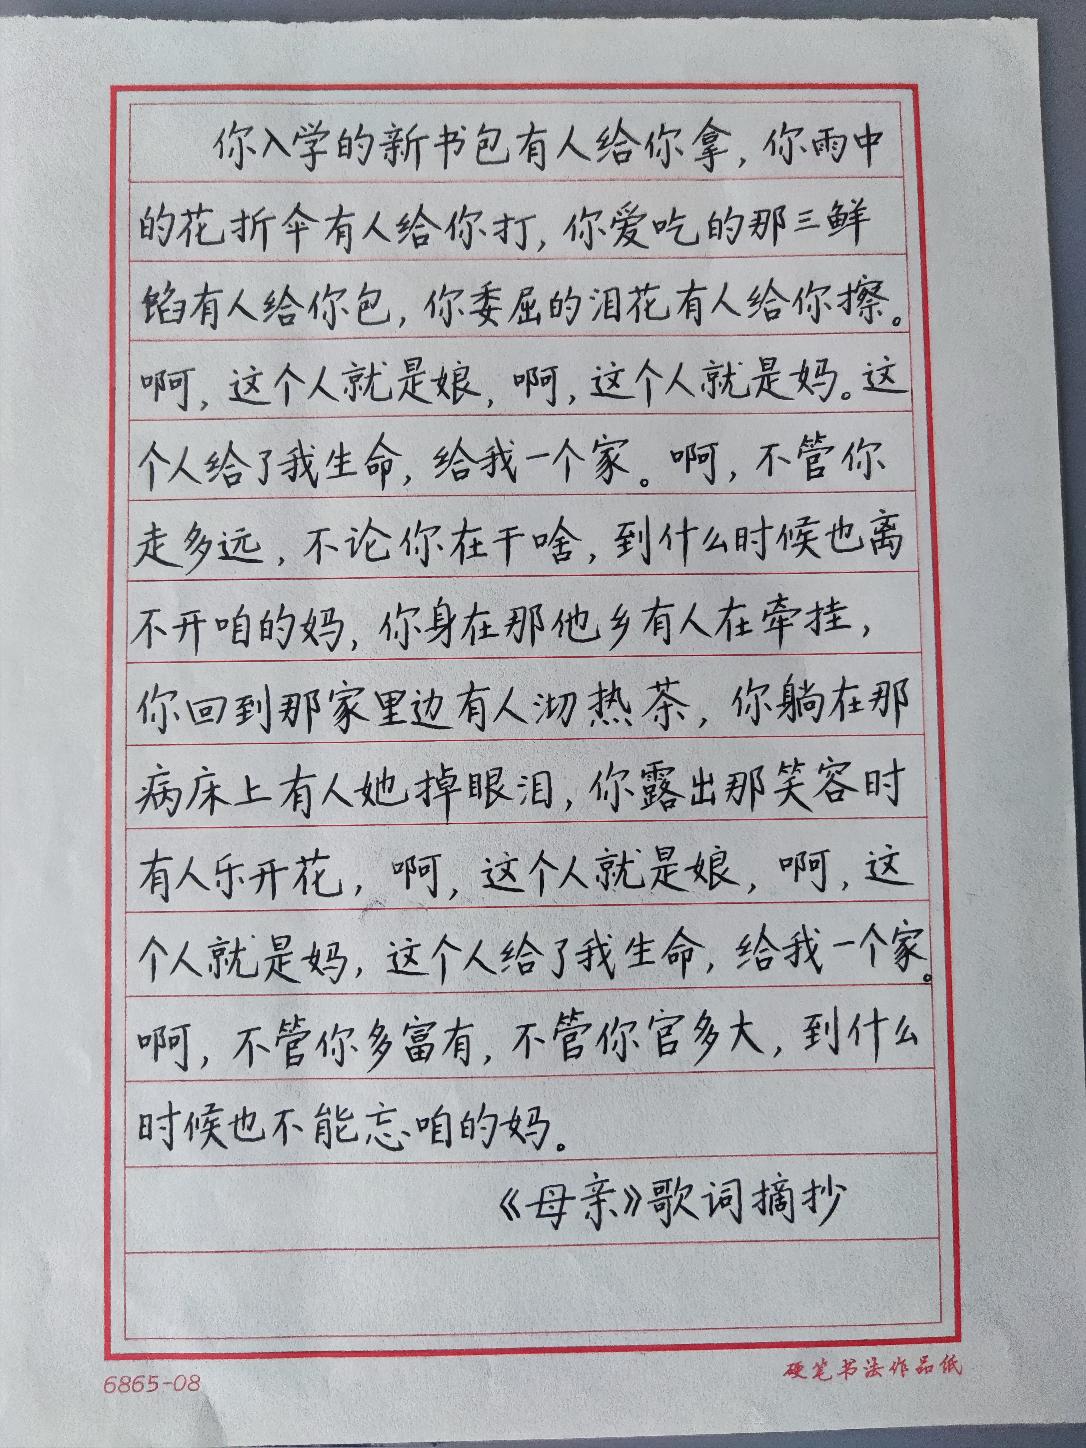 你入学的新书包有人给你拿，你雨中
的花折伞有人给你打，你爱吃的那三鲜
馅有人给你包，你委屈的泪花有人给你擦。
啊，这个人就是娘，啊，这个人就是妈。这
个人给了我生命，给我一个家。啊，不管你
走多远，不论你在干啥，到什么时候也离
不开咱的妈，你身在那他乡有人在牵挂，
你回到那家里边有人沏热茶，你躺在那
病床上有人她掉眼泪，你露出那笑容时
有人乐开花，啊，这个人就是娘，啊，这
个人就是妈，这个人给了我生命，给我一个家。
啊，不管你多富有，不管你官多大，到什么
时候也不能忘咱的妈。
《母亲》歌词摘抄
6865-08
硬笔书法作品纸